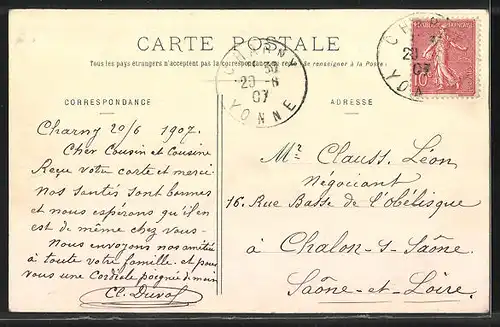 CARTE POSTALE
Tous les pays étrangers n'acceptent pas la correspondance au recto (Se renseigner à la Poste)
CORRESPONDANCE
ADRESSE
CHARNY
20 -6
07
YONNE
CH
20
07
YO
10
Charny 20/6 1907.
Cher Cousin et Cousine
Reçu votre carte et merci
Nos santés sont bonnes
et nous espérons qu'il en
est de même chez vous.
Nous envoyons nos amitiés
à toute votre famille. et pour
vous une Cordiale poignée de main
Cl. Duval
Mr. Clauss. Léon
Négociant
16. Rue Basse de l'Obélisque
à Chalon-s-Saône.
Saône-et-Loire.